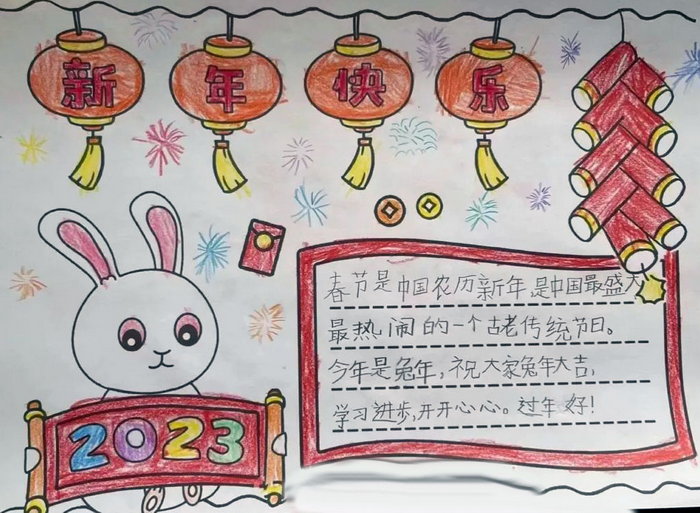 新年快乐
春节是中国农历新年,是中国最盛大
最热闹的一个古老传统节日。
今年是兔年,祝大家兔年大吉,
学习进步,开开心心。过年好!
2023